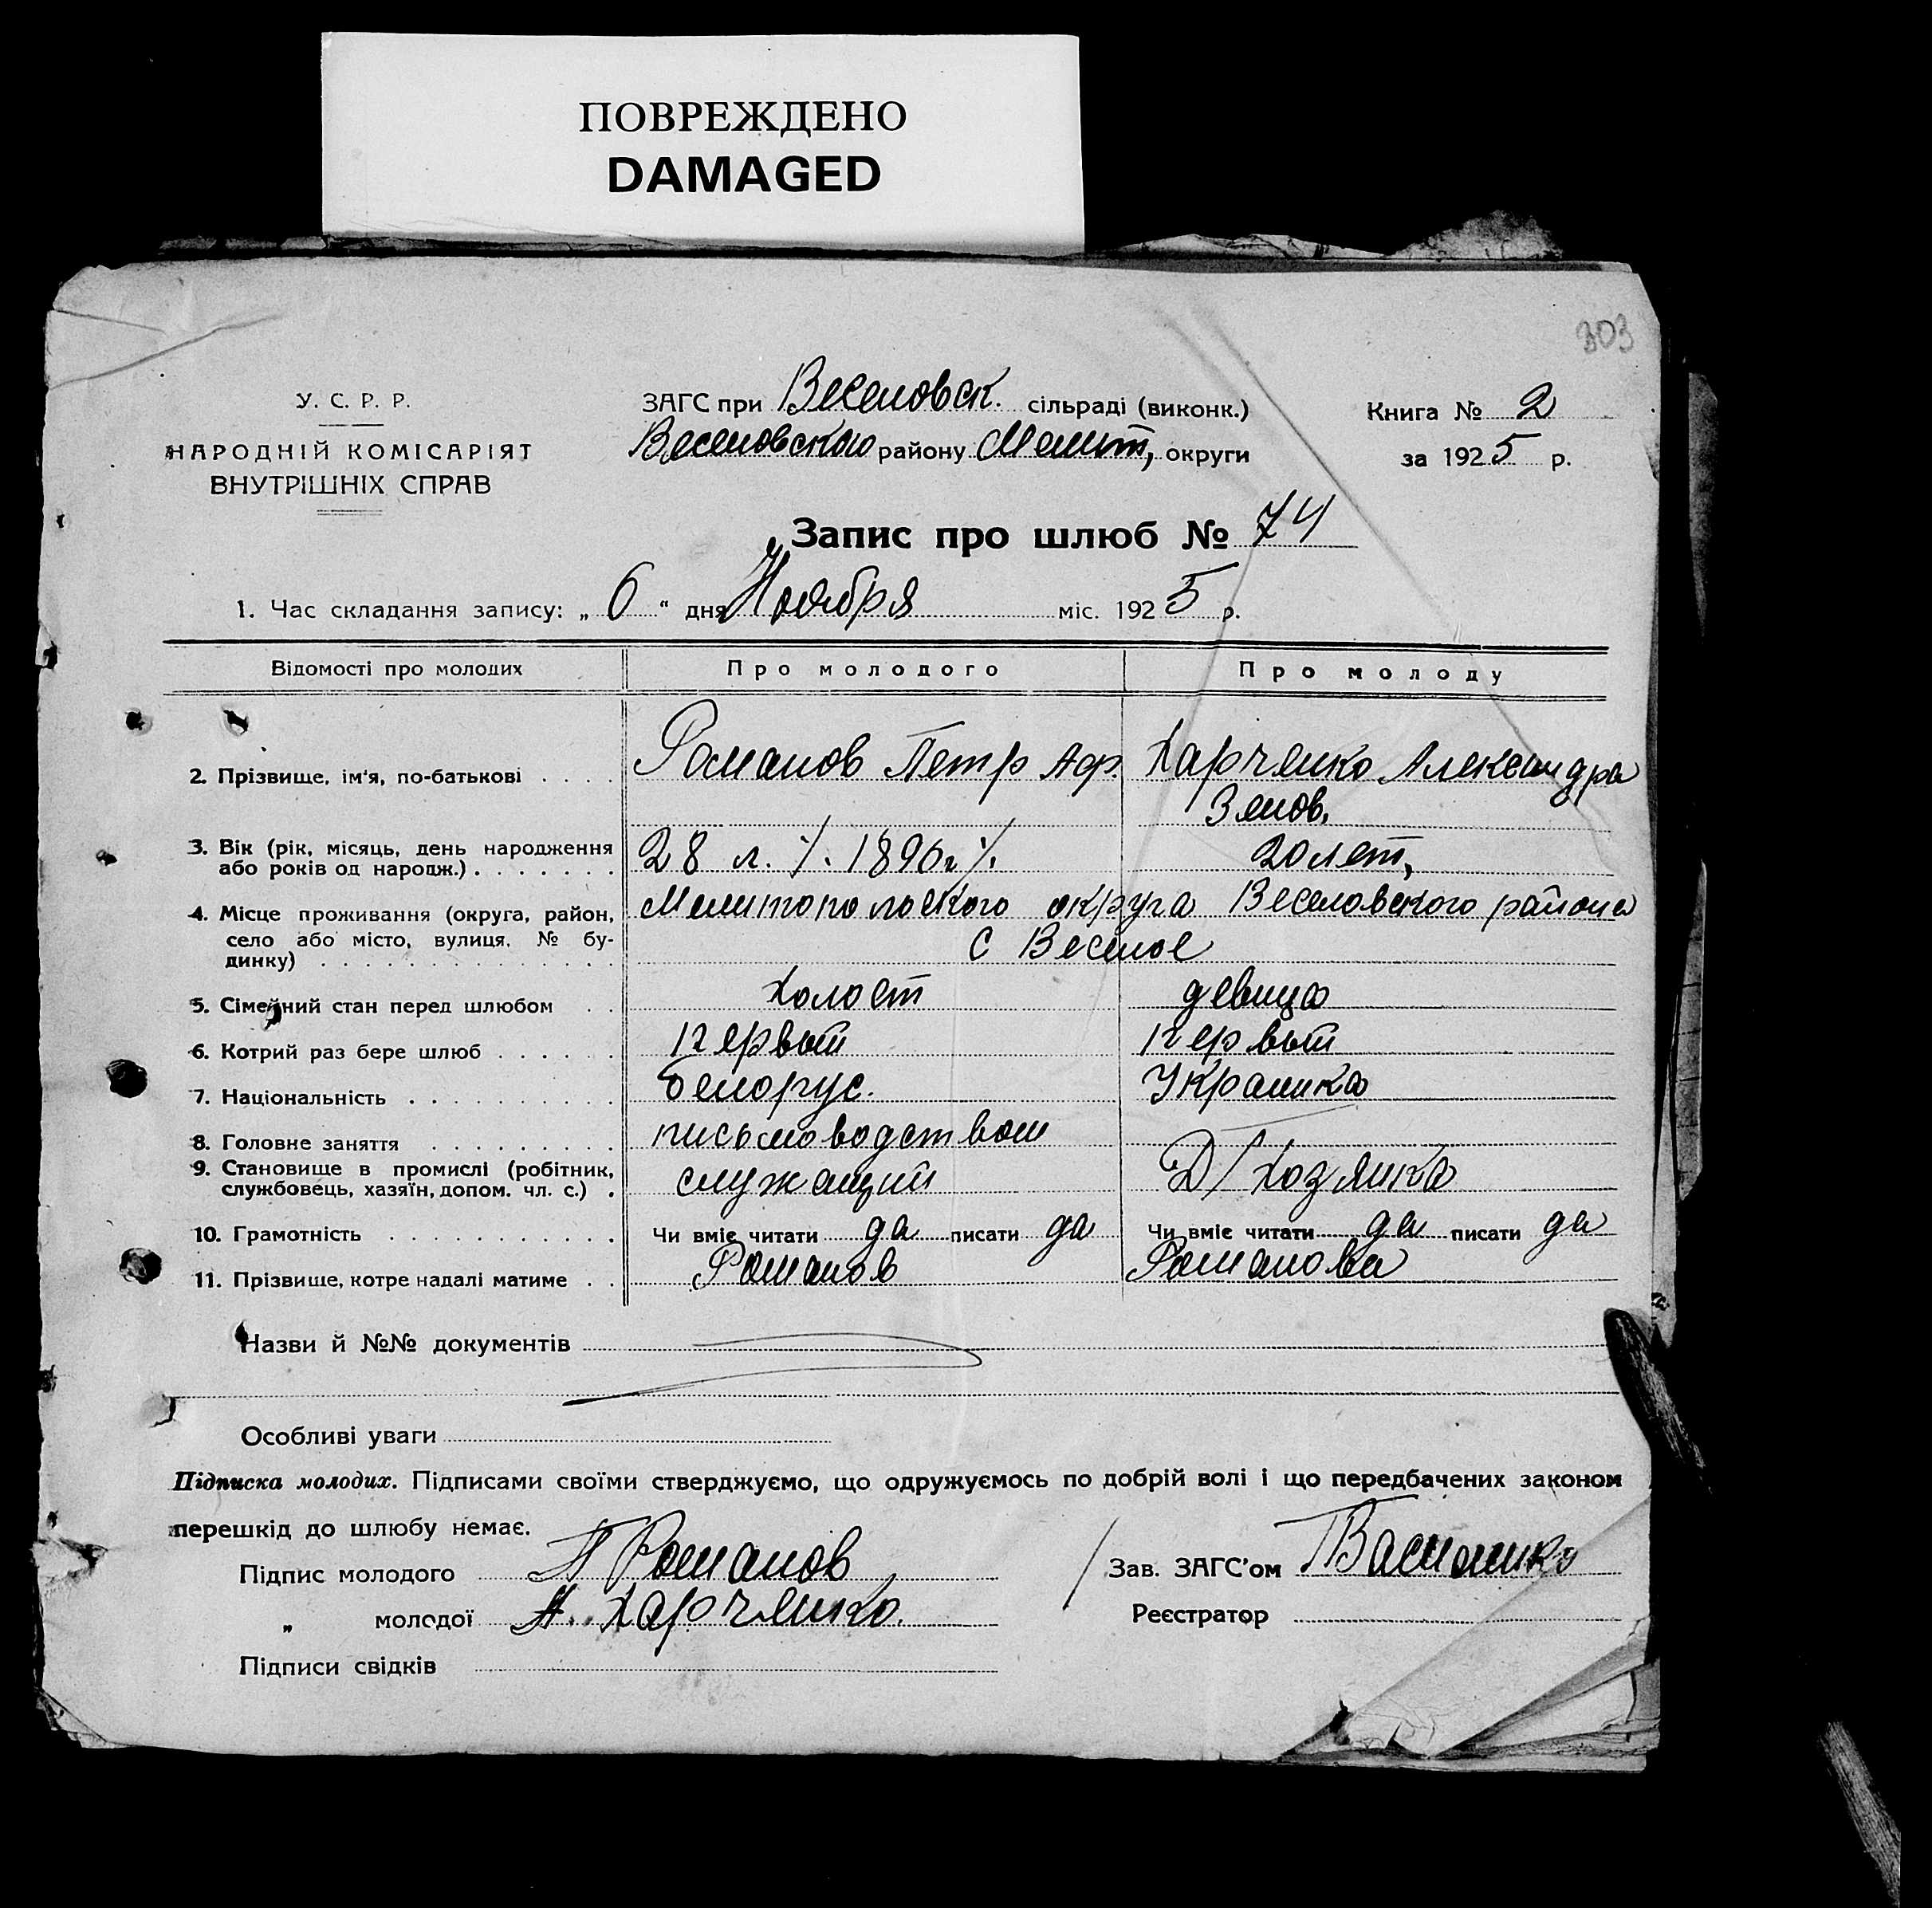 ПОВРЕЖДЕНО
DAMAGED
303
У. С. Р. Р.
НАРОДНІЙ КОМІСАРІЯТ
ВНУТРІШНІХ СПРАВ
ЗАГС при Веселовск. сільраді (виконк.)
Веселовского району Мелит, округи
Книга № 2
за 1925 р.
Запис про шлюб № 74
1. Час складання запису: „ 6 “ дня Ноября міс. 1925 р.
Відомості про молодих Про молодого Про молоду
2. Прізвище, ім'я, по-батькові Романов Петр Аф. Харченко Александра
Зенов.
3. Вік (рік, місяць, день народження
або років од народж.) 28 л. /. 1896 г /. 20 лет,
4. Місце проживання (округа, район, Мелитопольского округа Веселовского района
село або місто, вулиця, № бу-
динку) С Веселое
5. Сімейний стан перед шлюбом Холост девица
6. Котрий раз бере шлюб первый первый
7. Національність белорус. Украинка
8. Головне заняття письмоводством
9. Становище в промислі (робітник,
службовець, хазяїн, допом. чл. с.) служащий Д/Хозяйка
10. Грамотність Чи вміє читати да писати да Чи вміє читати да писати да
11. Прізвище, котре надалі матиме Романов Романова
Назви й №№ документів
Особливі уваги
Підписка молодих. Підписами своїми стверджуємо, що одружуємось по добрій волі і що передбачених законом
перешкід до шлюбу немає.
Підпис молодого П Романов
„ молодої А. Харченко.
Підписи свідків
Зав. ЗАГС'ом
Реєстратор